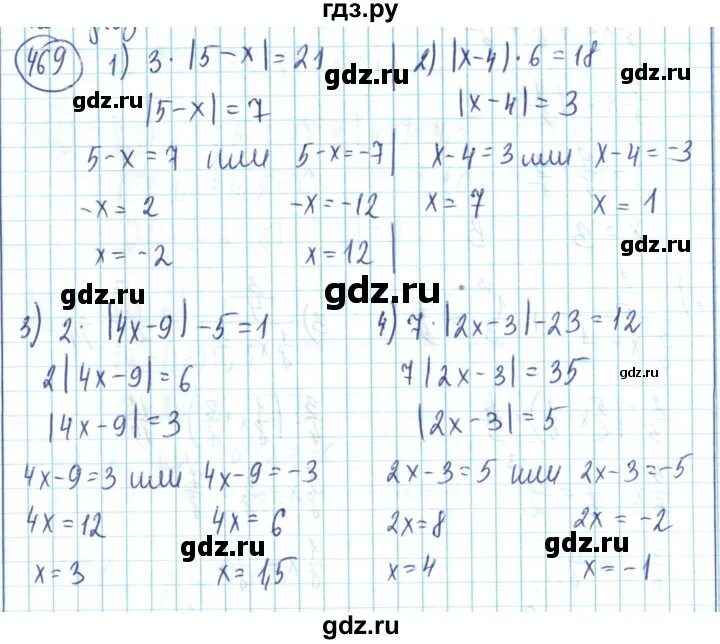 гдз.ру
469 1) 3 · |5-x| = 21
|5-x| = 7
5-x = 7 или 5-x = -7
-x = 2 -x = -12
x = -2 x = 12
2) |x-4| · 6 = 18
|x-4| = 3
x-4 = 3 или x-4 = -3
x = 7 x = 1
3) 2 · |4x-9| - 5 = 1
2|4x-9| = 6
|4x-9| = 3
4x-9 = 3 или 4x-9 = -3
4x = 12 4x = 6
x = 3 x = 1,5
4) 7 · |2x-3| - 23 = 12
7|2x-3| = 35
|2x-3| = 5
2x-3 = 5 или 2x-3 = -5
2x = 8 2x = -2
x = 4 x = -1
gdz.ru
gdz.ru
gdz.ru
gdz.ru
gdz.ru
gdz.ru
gdz.ru
gdz.ru
gdz.ru
gdz.ru